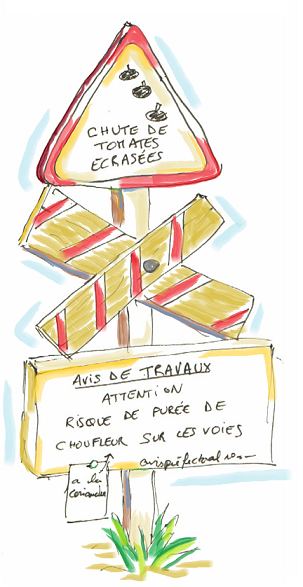 CHUTE DE
TOMATES
ECRASÉES
AVIS DE TRAVAUX
ATTENTION
RISQUE DE PURÉE DE
CHOUFLEUR SUR LES VOIES
avis préfectoral
a la
coriandre